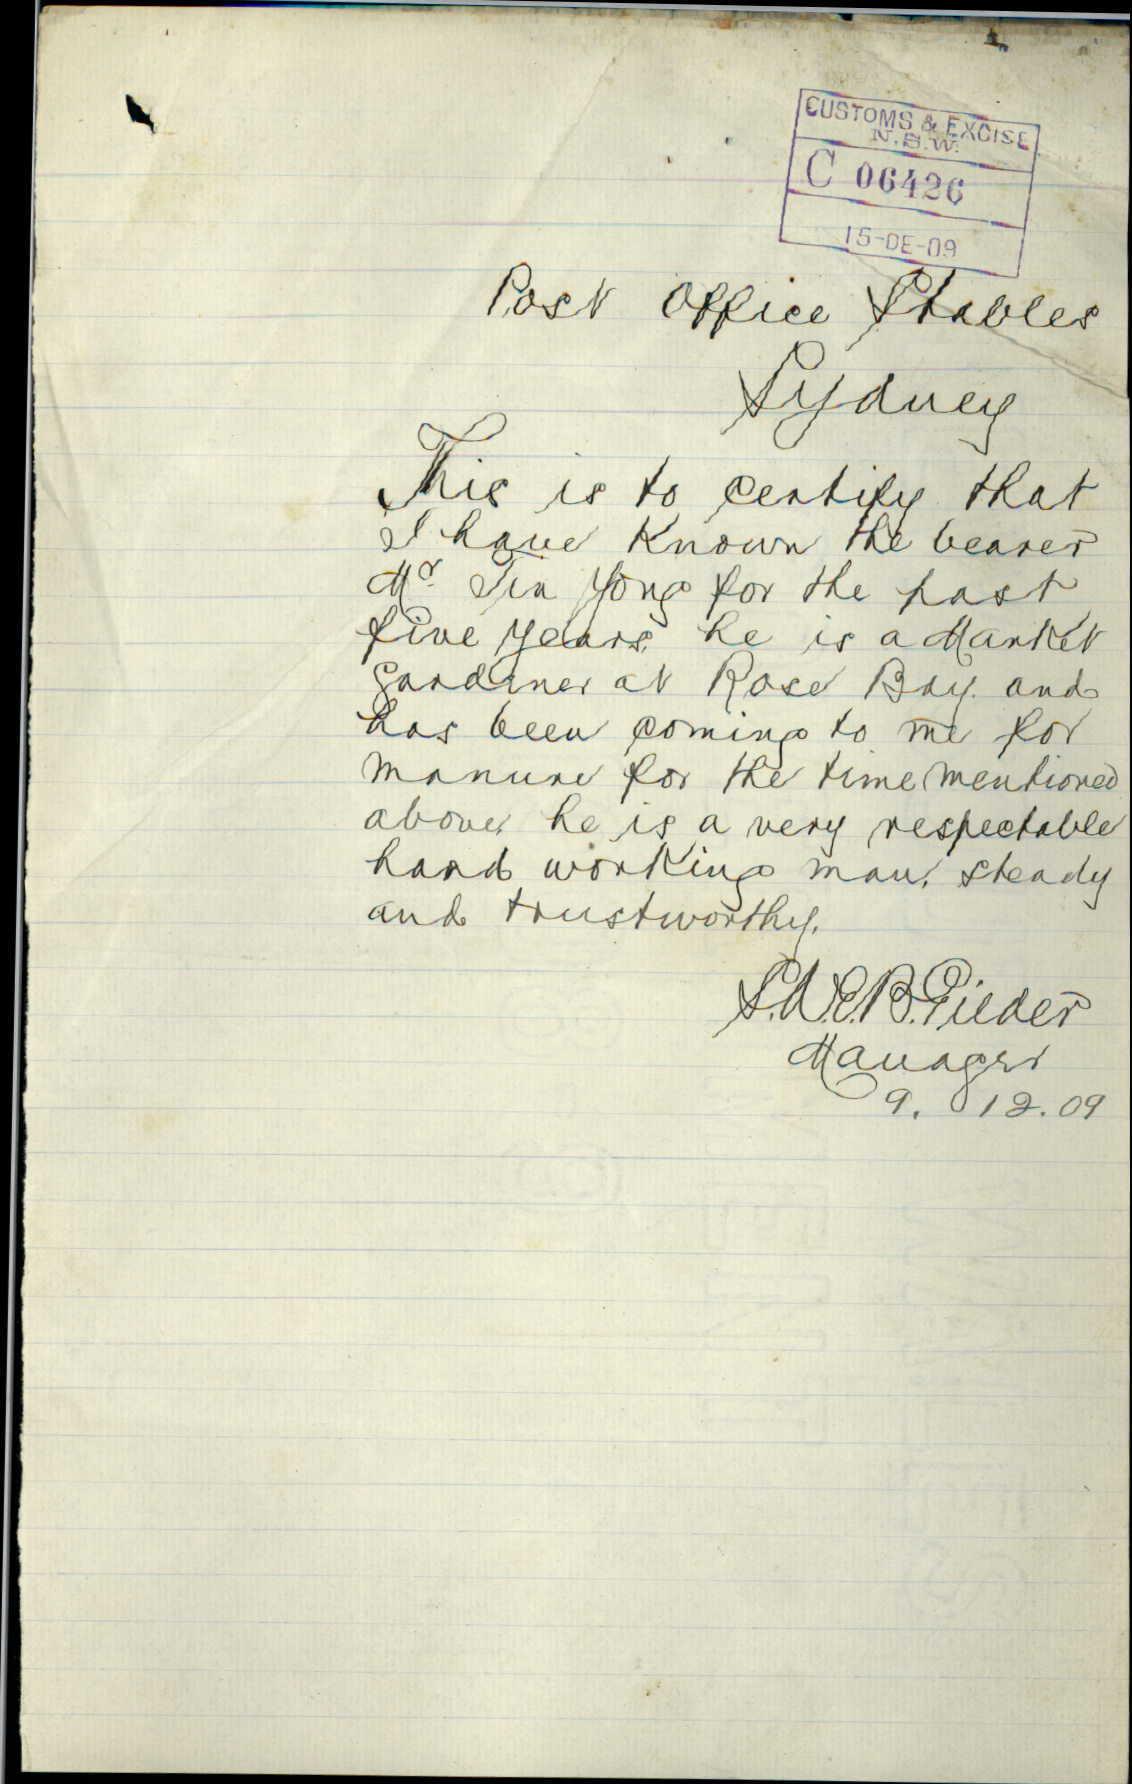 CUSTOMS & EXCISE
N.S.W.
C 06426
15-DE-09
Post Office Stables
Sydney
This is to certify that
I have Known the bearer
Mr. Tin Yong for the past
five years. he is a Market
gardener at Rose Bay. and
has been coming to me for
manure for the time mentioned
above. he is a very respectable
hard working man. steady
and trustworthy.
Manager
9. 12.09